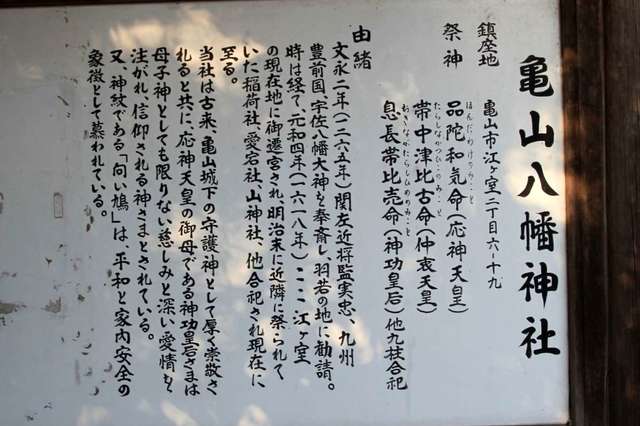 亀山八幡神社
鎮座地　亀山市江ヶ室二丁目六ー十九
祭神　品陀和気命（応神天皇）
ほんだわけのみこと
帯中津比古命（仲哀天皇）
たらしなかつひこのみこと
息長帯比売命（神功皇后）他九柱合祀
おきながたらしひめのみこと
由緒
文永二年（一二六五年）関左近将監実忠、九州
豊前国、宇佐八幡大神を奉斎し、羽若の地に勧請。
時は経て、元和四年（一六一八年）ここ江ヶ室
の現在地に御遷宮され、明治末に近隣に祭られて
いた稲荷社、愛宕社、山神社、他合祀され現在に
至る。
当社は古来、亀山城下の守護神として厚く崇敬さ
れると共に、応神天皇の御母である神功皇后さまは
母子神としても限りない慈しみと深い愛情を
注がれ、信仰される神さまとされている。
又、神紋である「向い鳩」は、平和と家内安全の
象徴として慕われている。